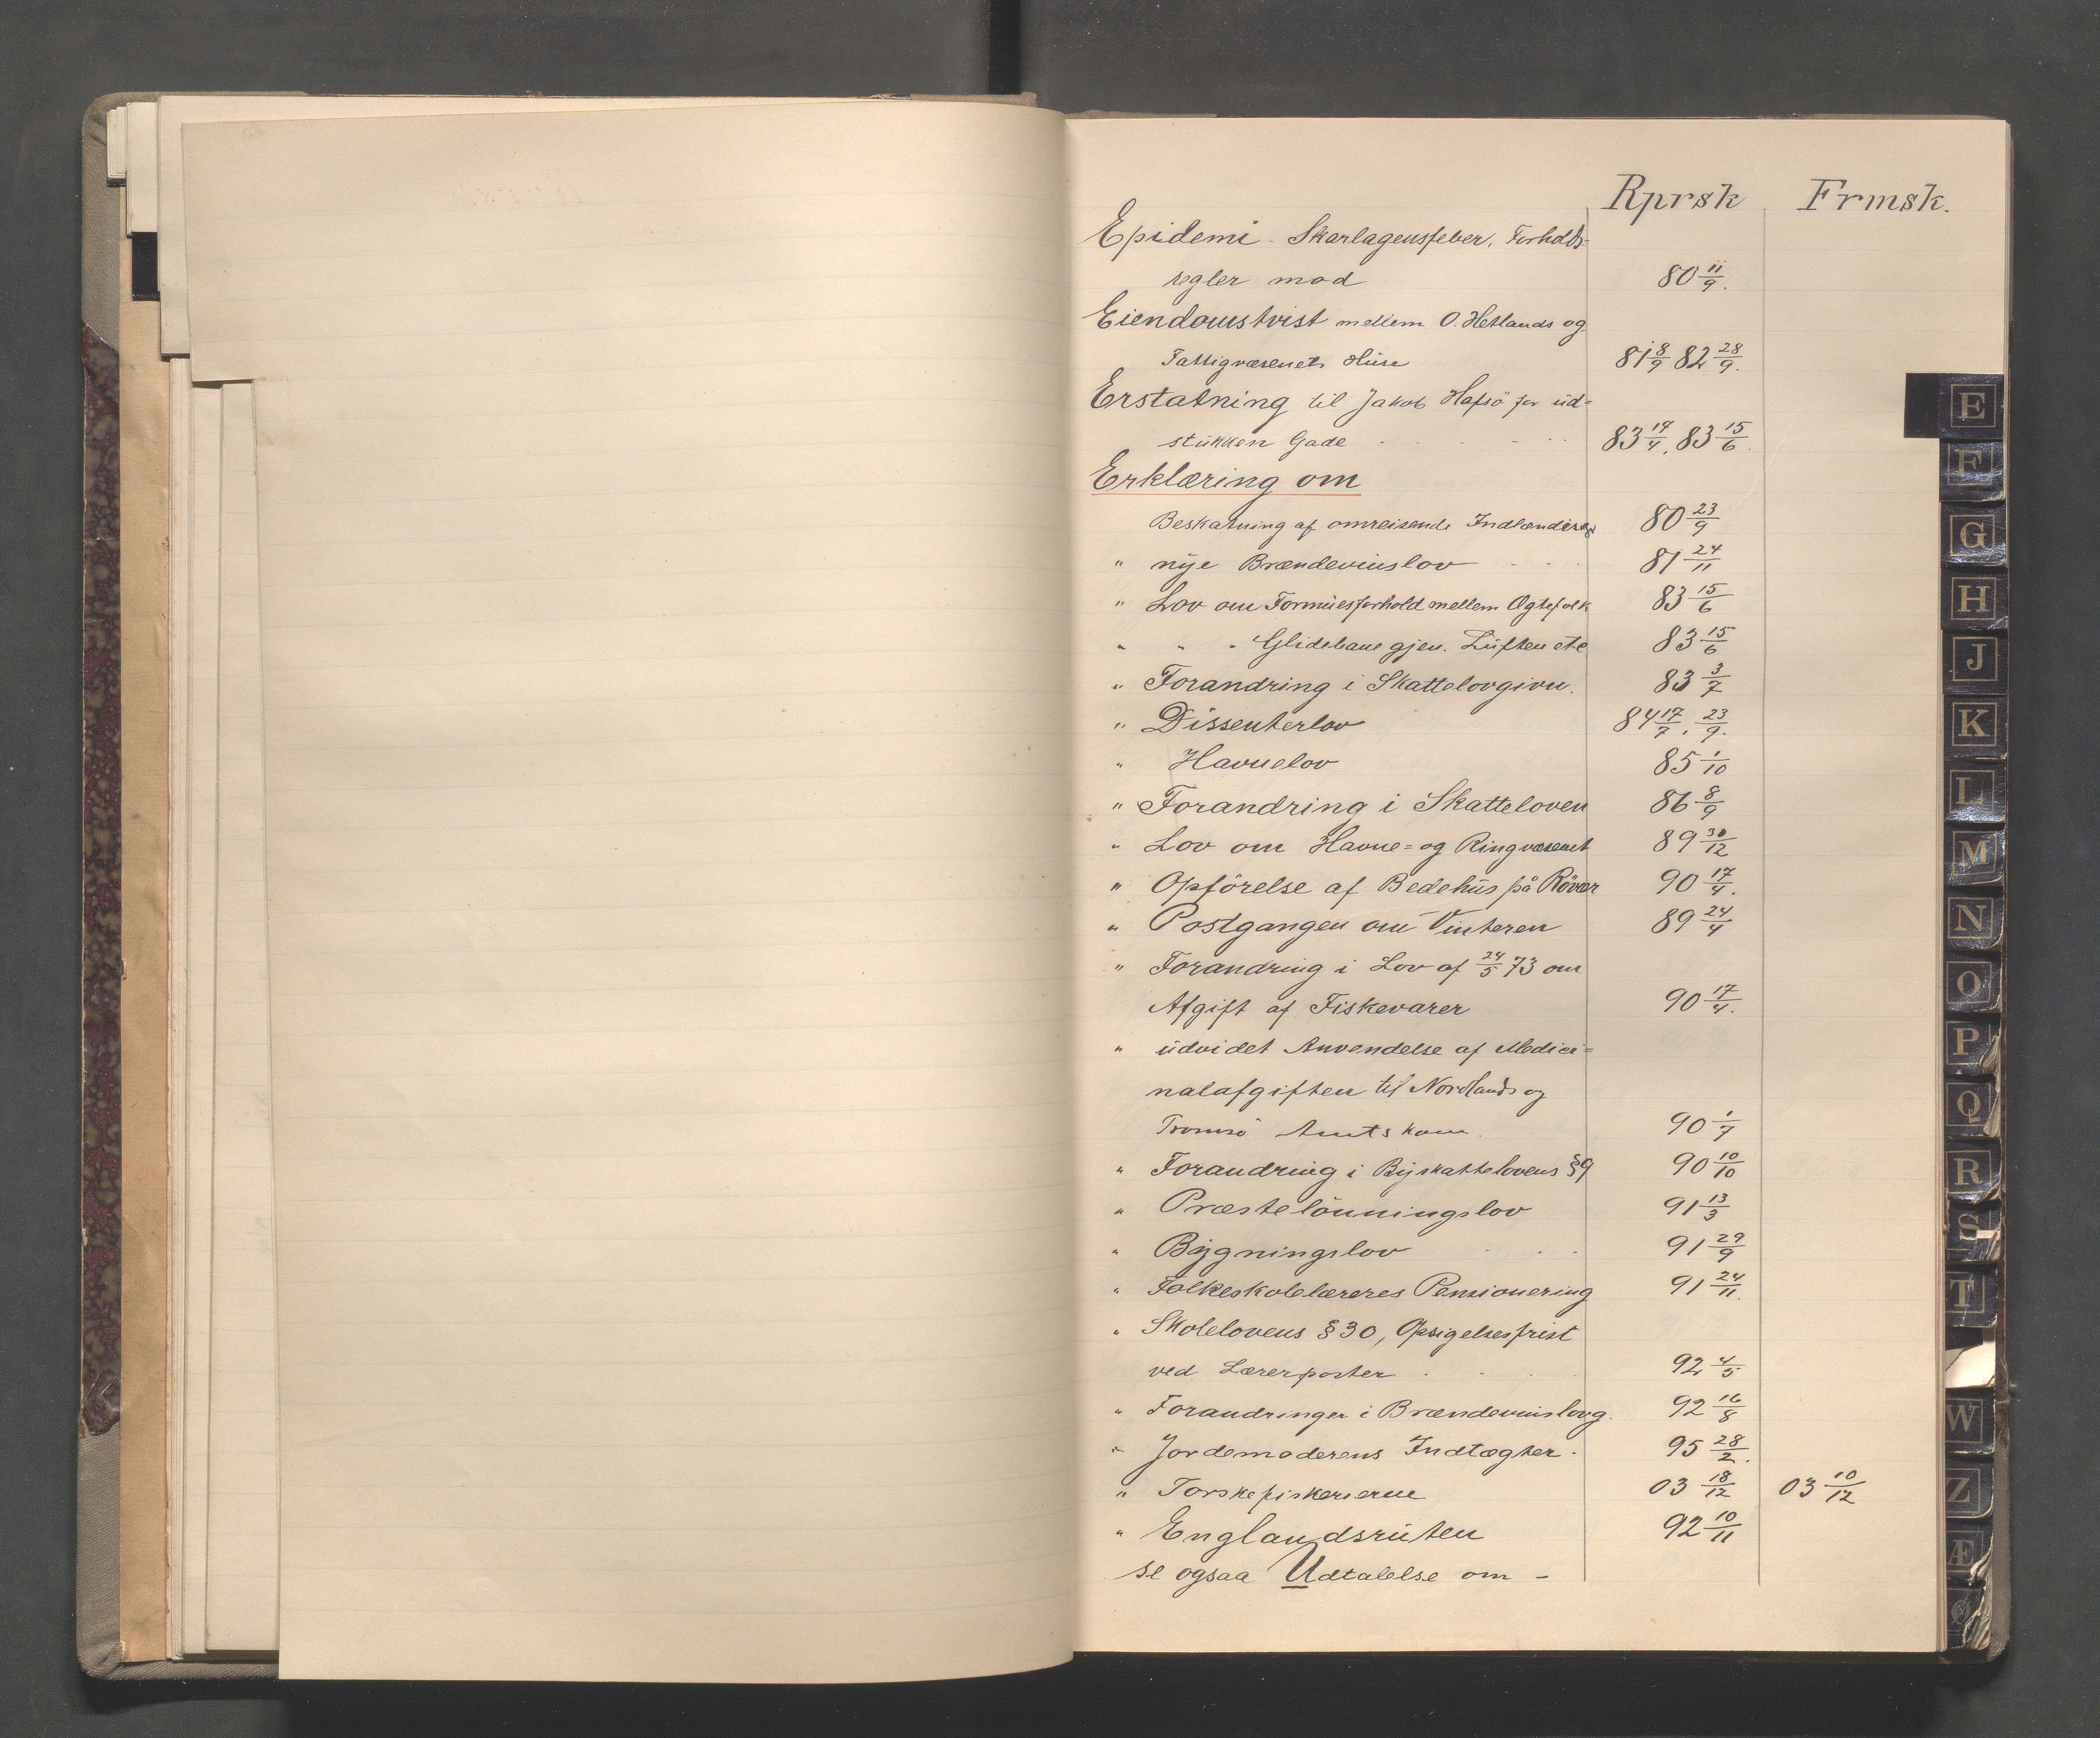 Rprsk Frmsk.
Epidemi - Skarlagensfeber, Forholds-
regler mod 80 11/9.
Eiendomstvist mellem O. Hetlands og
Fattigvæsenets Huse 81 8/9 82 28/9.
Erstatning til Jakob Hafsö for ud-
stukken Gade 83 17/4, 83 15/6.
Erklæring om
Beskatning af omreisende Indlændinge 80 23/9
" nye Brændevinslov 81 24/11
" Lov om Formuesforhold mellem Ægtefolk 83 15/6
" " " Glidebane gjen. Luften etc 83 15/6
" Forandring i Skattelovgivn. 83 3/7
" Dissenterlov 84 17/7, 23/9.
" Havnelov 85 1/10
" Forandring i Skatteloven 86 8/9
" Lov om Havne= og Ringvæsenet 89 30/12
" Opförelse af Bedehus på Rövær 90 17/4.
" Postgangen om Vinteren 89 24/4
" Forandring i Lov af 24/5 73 om
Afgift af Fiskevarer 90 17/4.
" udvidet Anvendelse af Medici=
nalafgiften til Nordlands og
Tromsö Amtskom. 90 1/7
" Forandring i Byskattelovens §9 90 10/10
" Præstelönningslov 91 13/3
" Bygningslov 91 29/9
" Folkeskolelæreres Pensionering 91 24/11.
" Skolelovens §30, Opsigelsesfrist
ved Lærerposter 92 4/5
" Forandringer i Brændevinslovg. 92 16/8
" Jordemoderens Indtægter. 95 28/2.
" Torskefiskerierne 03 18/12 03 10/12
" Englandsruten 92 10/11
se ogsaa Udtalelse om -
E
F
G
H
J
K
L
M
N
O
P
Q
R
S
T
W
Z
Æ
Ø